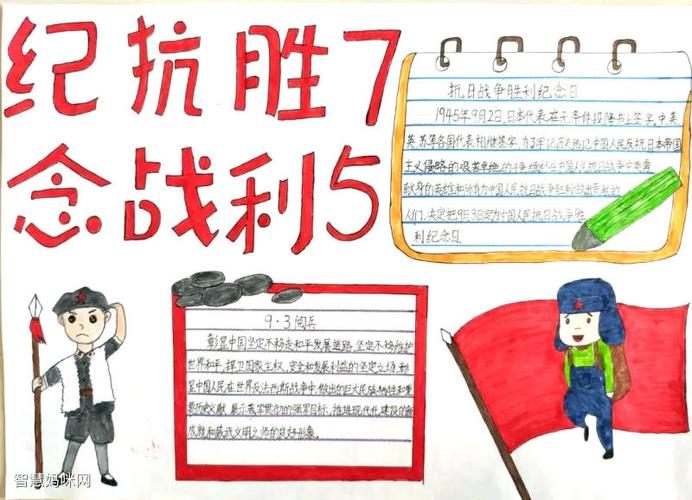 纪抗胜7
念战利5
抗日战争胜利纪念日
1945年9月2日,日本代表在无条件投降书上签字,中美
英苏等各国代表相继签字,为了牢记历史,铭记中国人民反抗日本帝国
主义侵略的艰苦卓绝的斗争 缅怀在中国人民抗日战争中英勇
献身的英雄和所有为中国人民抗日战争胜利做出贡献的
人们,决定把9月3日定为中国人民抗日战争胜
利纪念日.
9·3阅兵
彰显中国坚定不移走和平发展道路,坚定不移维护
世界和平,捍卫国家主权,安全和发展利益的坚定立场,彰
显中国人民在世界反法西斯战争中,做出的巨大民族牺牲和重
要历史贡献,展示我军贯彻的强军目标,推进现代化建设的新
成就和威武文明之师的良好形象.
智慧妈咪网